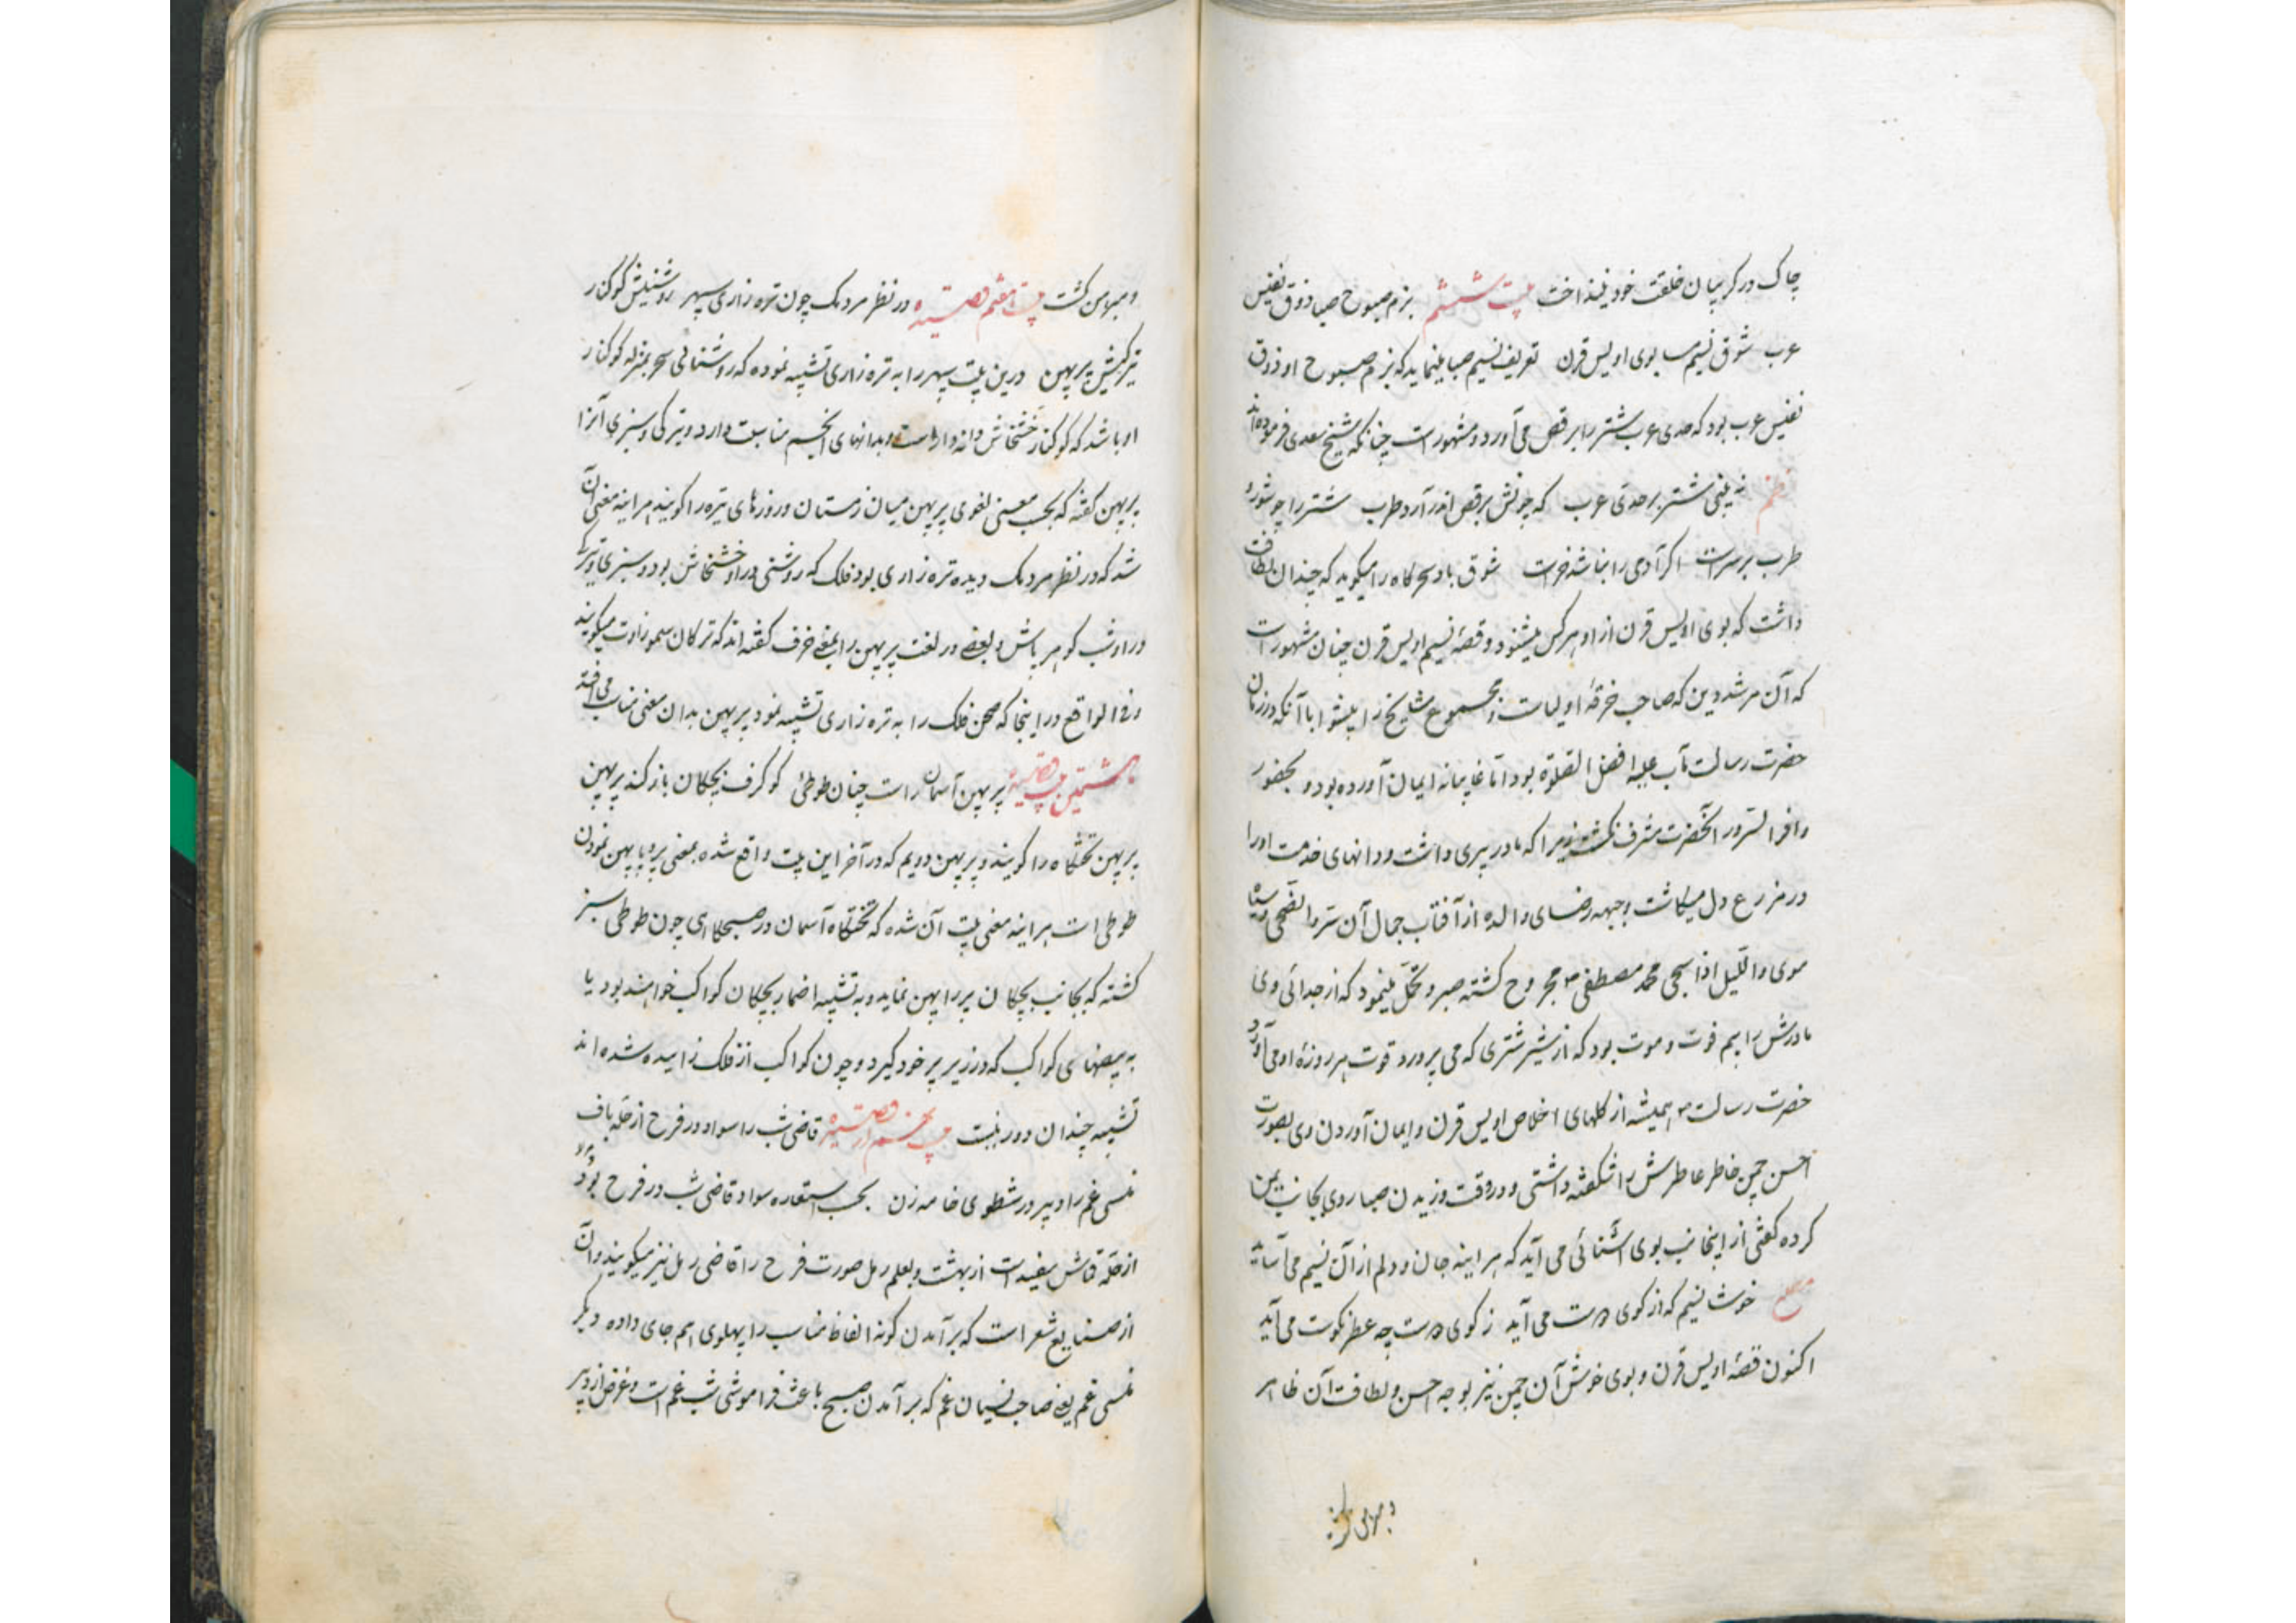 چاک در کریبان خلقت خود نینداخت بیت ششم بزم صبوح صبا ذوق نفیس
عرب شوق نسیم سبا بوی اویس قرن تعریف نسیم صبا مینماید که بزم صبوح او ذوق
نفیس عرب بود که حدی عرب شتر را برقص می‌آورد و مشهور است چنانکه شیخ سعدی فرموده‌اند
نظم نه بینی شتر بر حدی عرب که چونش برقص اندر آرد طرب شتر را چو شور و
طرب بر سرست اکر آدمی را نباشد خرست شوق باد سحرکاه را میکوید که چندان لطافت
داشت که بوی اویس قرن از او هر کس میشنود و قصهٔ نسیم اویس قرن چنان مشهور است
که آن مرشد دین که صاحب خرقهٔ اولیاست و مجموع مشایخ را پیشوا با آنکه در زمان
حضرت رسالت مآب علیه افضل الصلوة بود اما غایبانه ایمان آورده بود و بحضور
وافر السرور آنحضرت مشرف نکشته زیرا که مادر پیری داشت و دانهای خدمت او را
در مزرع دل میکاشت و جبهه رضای والده از آفتاب جمال آن سر والضحی
موی واللیل اذا سجی محمد مصطفی ص مجروح کشته صبر و تحمل مینمود که از جدائی وی
مادرش را بیم فوت و موت بود که از شیر شتری که می پرورد قوت هر روزهٔ او می آورد
حضرت رسالت ص همیشه از کلهای اخلاص اویس قرن و ایمان آوردن وی بصورت
احسن چمن خاطر عاطرش را شکفته داشتی و در وقت وزیدن صبا روی بجانب یمن
کرده کفتی از اینجانب بوی آشنائی می آید که هر اینه جان و دلم از آن نسیم می آساید
مصرع خوش نسیم که از کوی دوست می آید ز کوی دوست چه عطر نکوست می آید
اکنون قصهٔ اویس قرن و بوی خوش آن چمن نیز بوجه احسن و لطافت آن ظاهر
و مبرهن کشت
و مبرهن کشت بیت هفتم قصیده در نظر مردمک چون تره زاری سپهر روشنیش کوکنار
تیرکیش پرپهن درین بیت سپهر را به تره زاری تشبیه نموده که روشنائی سحر بمنزله کوکنار
او باشد که کوکنار خشخاش دانه دار است و بدانهای انجم مناسبت دارد و تیرکی و سبزی آنرا
پرپهن کفته که بحسب معنی لغوی پرپهن میان زمستان و روزهای تیره را کویند هر اینه معنی آن
شد که در نظر مردمک دیده تره زاری بود فلک که روشنی در او خشخاش بود و سبزی و تیرکی
در او شب کو هر باش و بعضی در لغت پرپهن را بمعنی خرف کفته‌اند که ترکان سموزاوت میکویند
و فی الواقع در اینجا که صحن فلک را به تره زاری تشبیه نمود پرپهن بدان معنی مناسب می افتد
بیت هشتمین قصیده پرپهن آسمان راست چنان طوطئ کو کرف بچکان باز کند پرپهن
پرپهن تختکاه را کویند و پرپهن دویم که در آخر این بیت واقع شده بمعنی پر و با پهن نمودن
طوطی است هر اینه معنی بیت آن شده که تختکاه آسمان در صبحکاهی چون طوطی سبز
کشته که بجانب بچکان پر را پهن نماید و به تشبیه اضمار بچکان کواکب خواهند بود یا
به بیضهای کواکب که در زیر پر خود کیرد و چون کواکب از فلک زاییده شده‌اند
تشبیه چندان دور نیست بیت نهم از قصیده قاضی شب را سواد در فرح از حله باف
منسی غم را دبیر در شطوی خامه زن بحسب استعاره سواد قاضی شب در فرح بود
از حله قماش سفید است از بهشت و بعلم رمل صورت فرح را قاضی رمل نیز میکویند و آن
از صنایع شعر است که بر آمدن کونه الفاظ مناسب را پهلوی هم جای داده دیکر
منسی غم یعنی صاحب نسیان غم که بر آمدن صبح باعث فراموشی شب غم است و غرض از دبیر